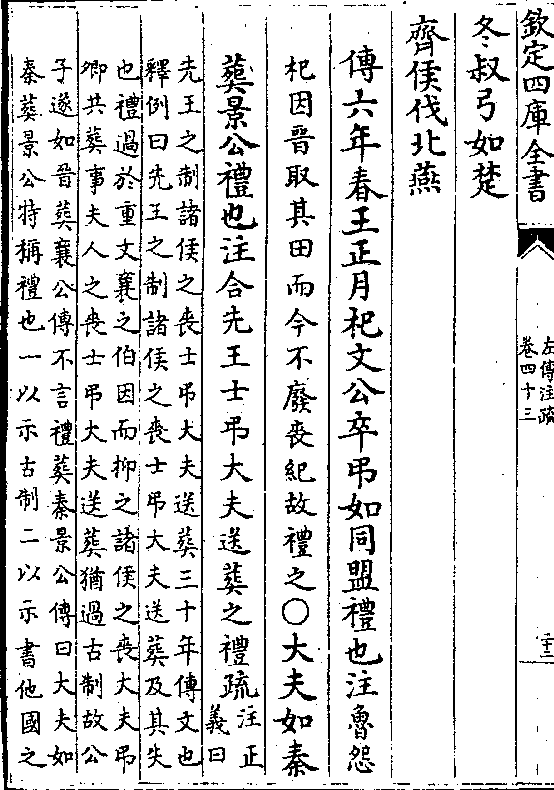 欽定四庫全書
左傳注疏
卷四十三
二十二
冬叔弓如楚
齊侯伐北燕
傳六年春王正月杞文公卒弔如同盟禮也注魯怨
杞因晉取其田而今不廢喪紀故禮之○大夫如秦
葬景公禮也注合先王士弔大夫送葬之禮疏
注正
義曰
先王之制諸侯之喪士弔大夫送葬三十年傳文也
釋例曰先王之制諸侯之喪士弔大夫送葬及其失
也禮過於重文襄之伯因而抑之諸侯之喪大夫弔
卿共葬事夫人之喪士弔大夫送葬猶過古制故公
子遂如晉葬襄公傳不言禮葬秦景公傳曰大夫如
秦葬景公特稱禮也一以示古制二以示書他國之